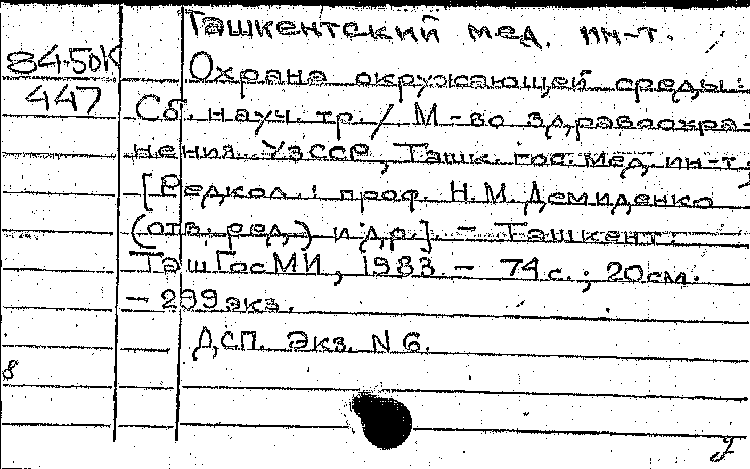 Ташкентский мед. ин-т.
84-50К Охрана окружающей среды:
447 Сб. науч. тр. / М-во здравоохра-
нения УзССР, Ташк. гос. мед. ин-т;
[Редкол.: проф. Н.М. Демиденко
(отв. ред.) и др.]. - Ташкент:
ТашГосМИ, 1983. - 74 с.; 20 см.
- 299 экз.
ДСП. Экз. N 6.
8